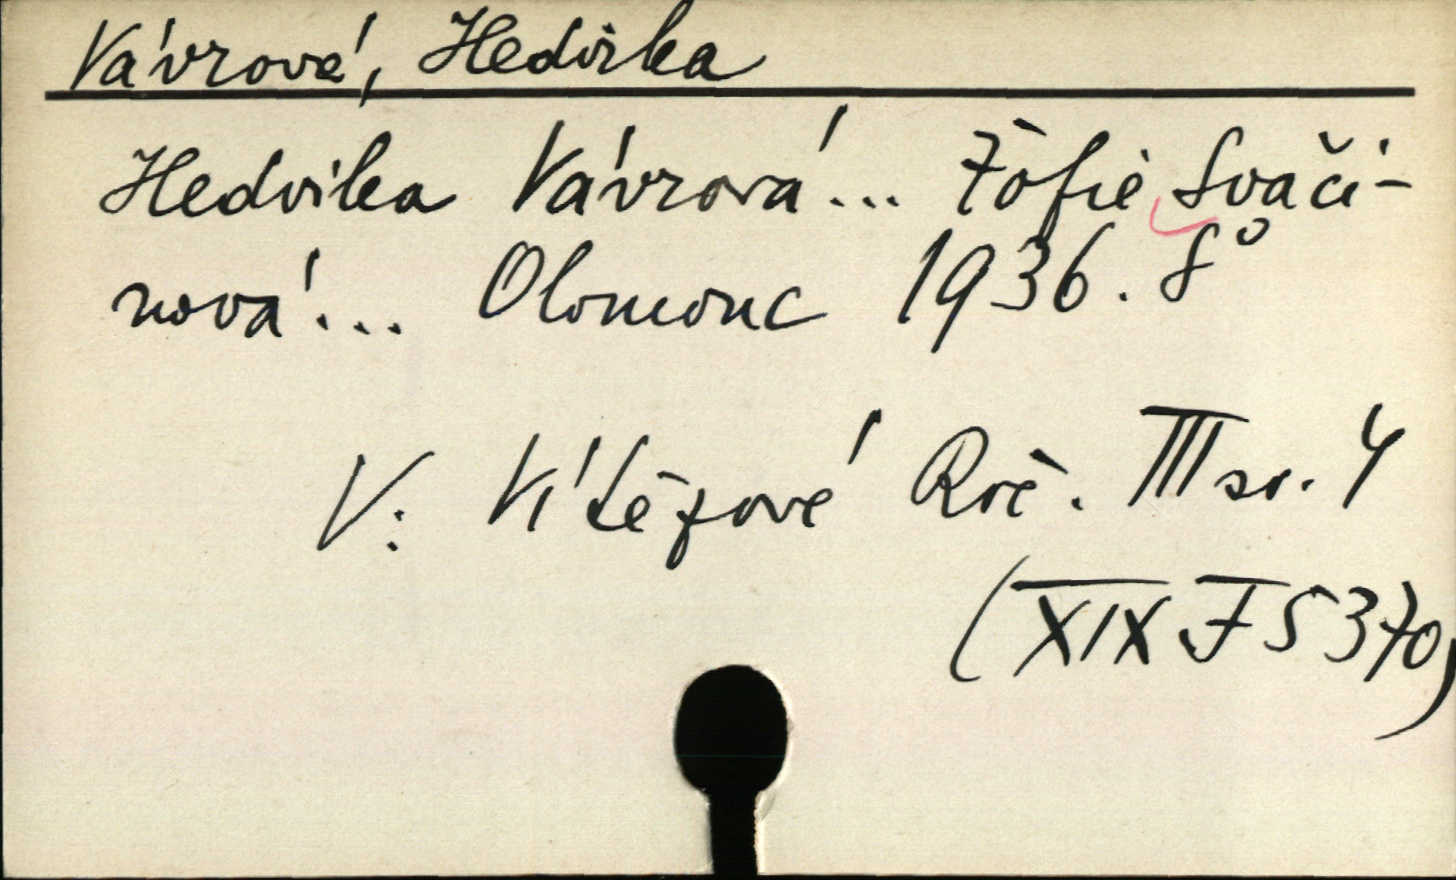 Vávrová, Hedvika
Hedvika Vávrová... Žofie Svači-
nová... Olomouc 1936. 8°
V: Vítězové Roč. III sv. 4
(XIX J 5370)